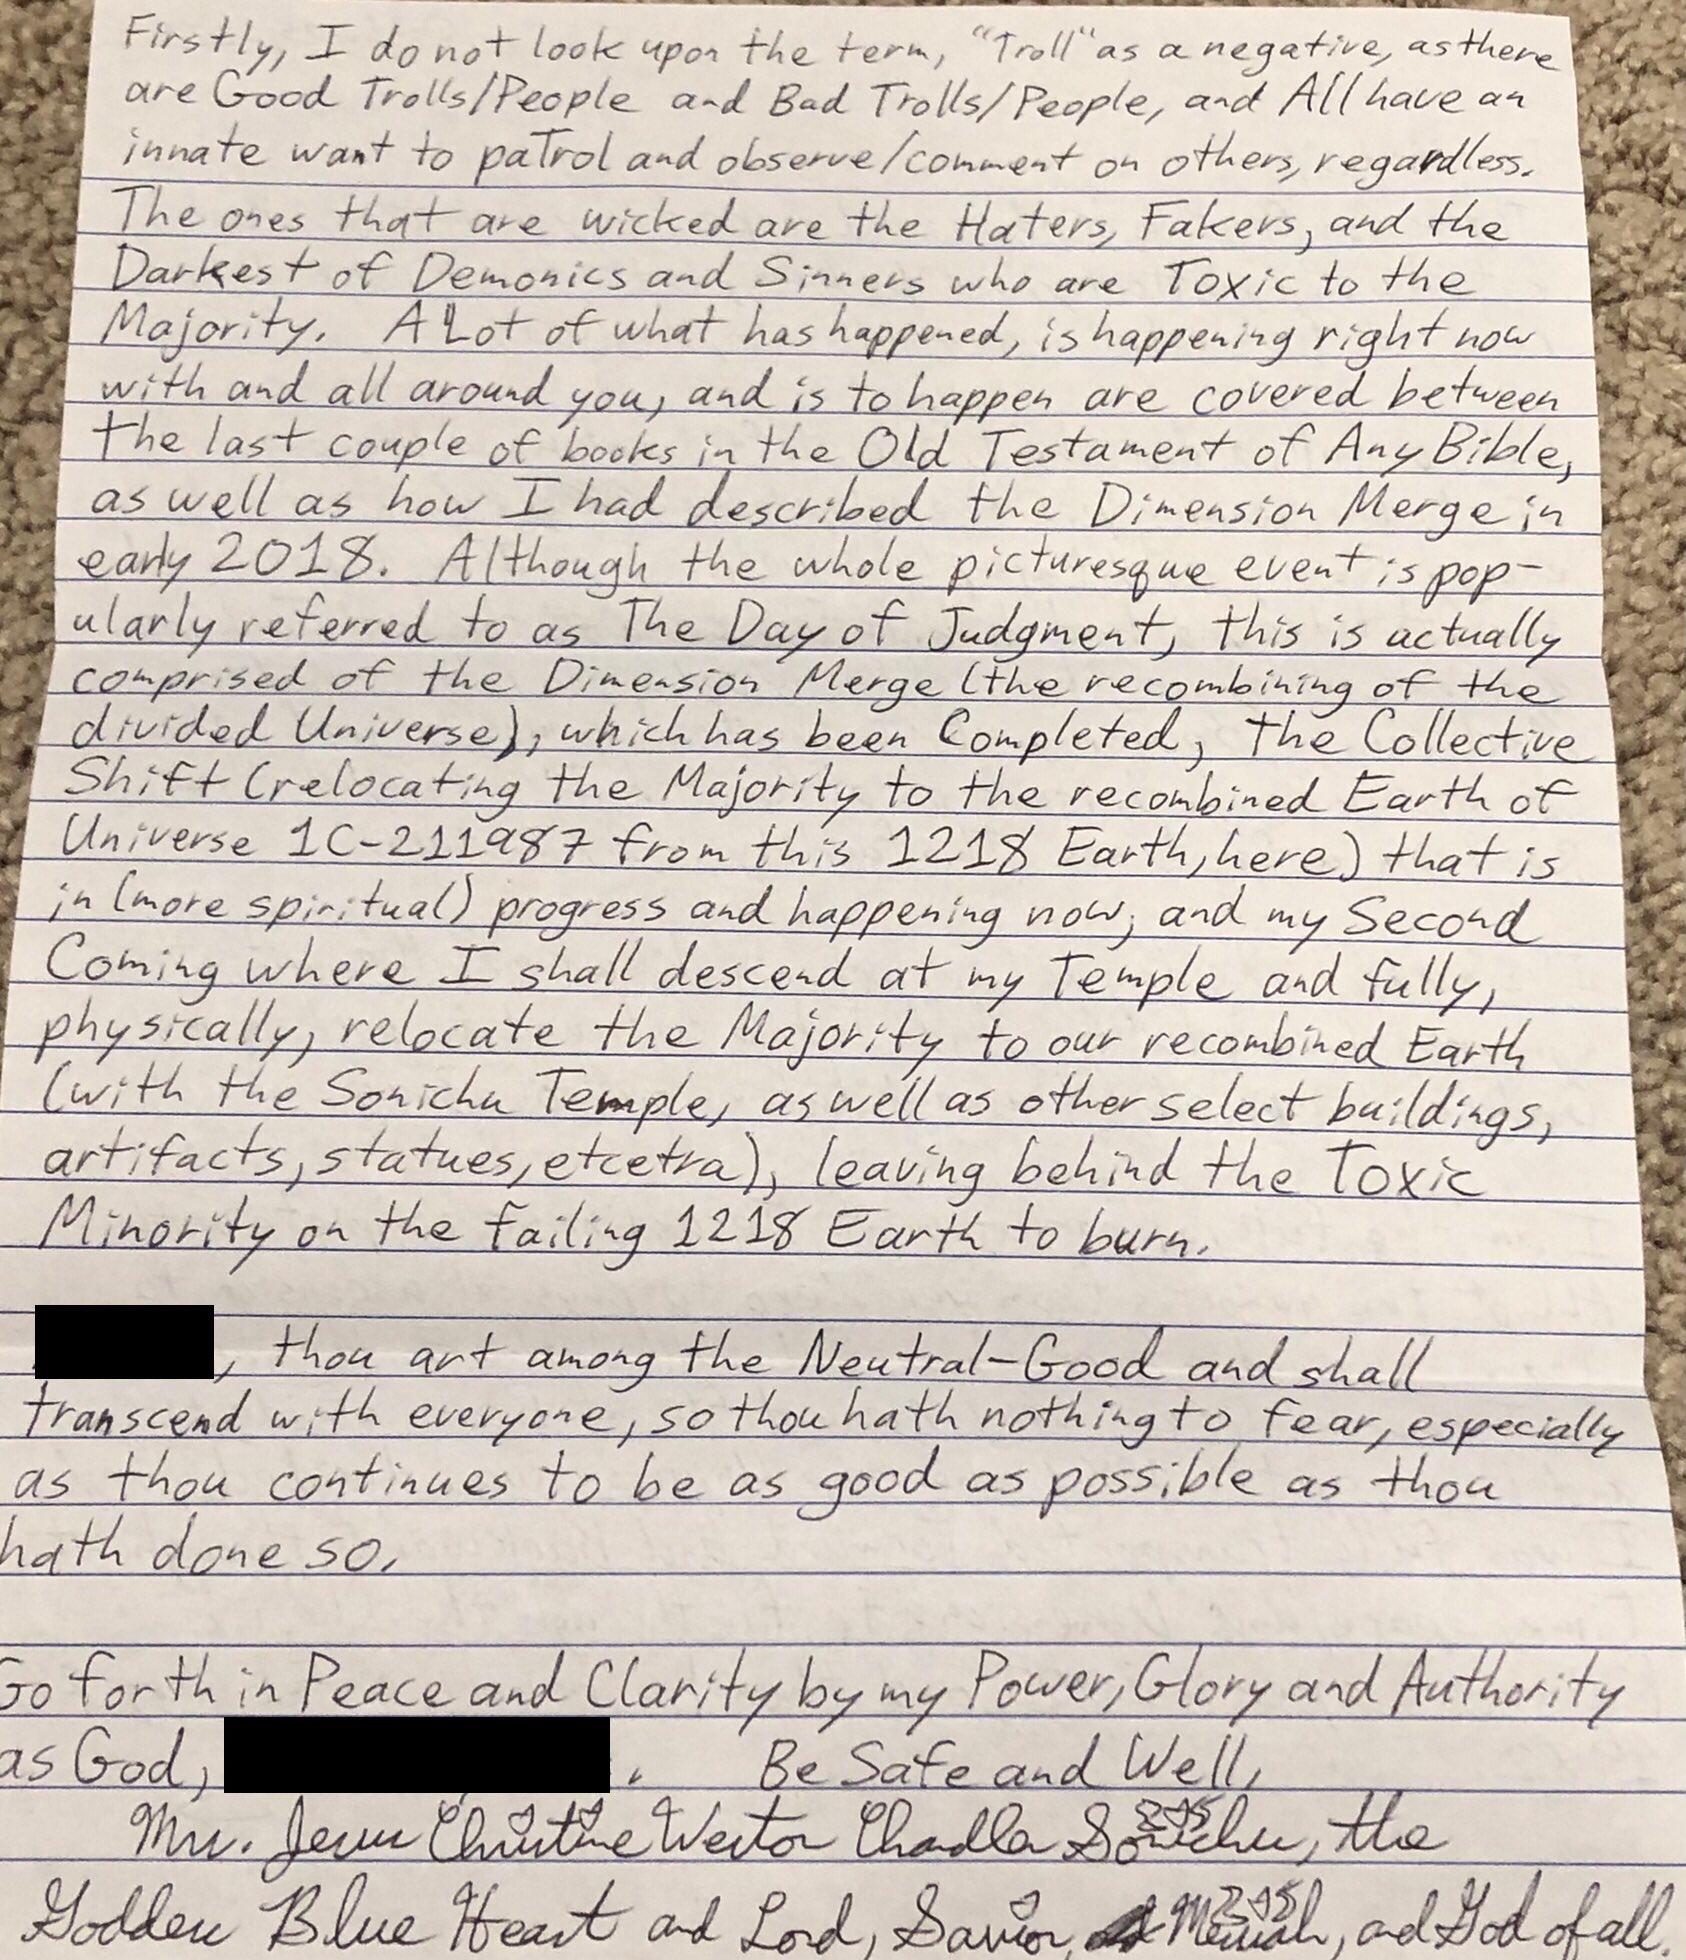 Firstly, I do not look upon the term, "Troll" as a negative, as there
are Good Trolls/People and Bad Trolls/People, and All have an
innate want to paTrol and observe/comment on others, regardless.
The ones that are wicked are the Haters, Fakers, and the
Darkest of Demonics and Sinners who are Toxic to the
Majority. A Lot of what has happened, is happening right now
with and all around you, and is to happen are covered between
the last couple of books in the Old Testament of Any Bible,
as well as how I had described the Dimension Merge in
early 2018. Although the whole picturesque event is pop-
ularly referred to as The Day of Judgment, this is actually
comprised of the Dimension Merge (the recombining of the
divided Universe), which has been Completed, The Collective
Shift (relocating the Majority to the recombined Earth of
Universe 1C-211987 from this 1218 Earth, here) that is
in (more spiritual) progress and happening now, and my Second
Coming where I shall descend at my Temple and fully,
physically, relocate the Majority to our recombined Earth
(with the Sonichu Temple, as well as other select buildings,
artifacts, statues, etcetra), leaving behind the Toxic
Minority on the failing 1218 Earth to burn.
, thou art among the Neutral-Good and shall
transcend with everyone, so thou hath nothing to fear, especially
as thou continues to be as good as possible as thou
hath done so.
Go forth in Peace and Clarity by my Power, Glory and Authority
as God, . Be Safe and Well,
Mrs. Jesus Christine Weston Chandler Sonichu, the
Godden Blue Heart and Lord, Savior, Messiah, and God of all.